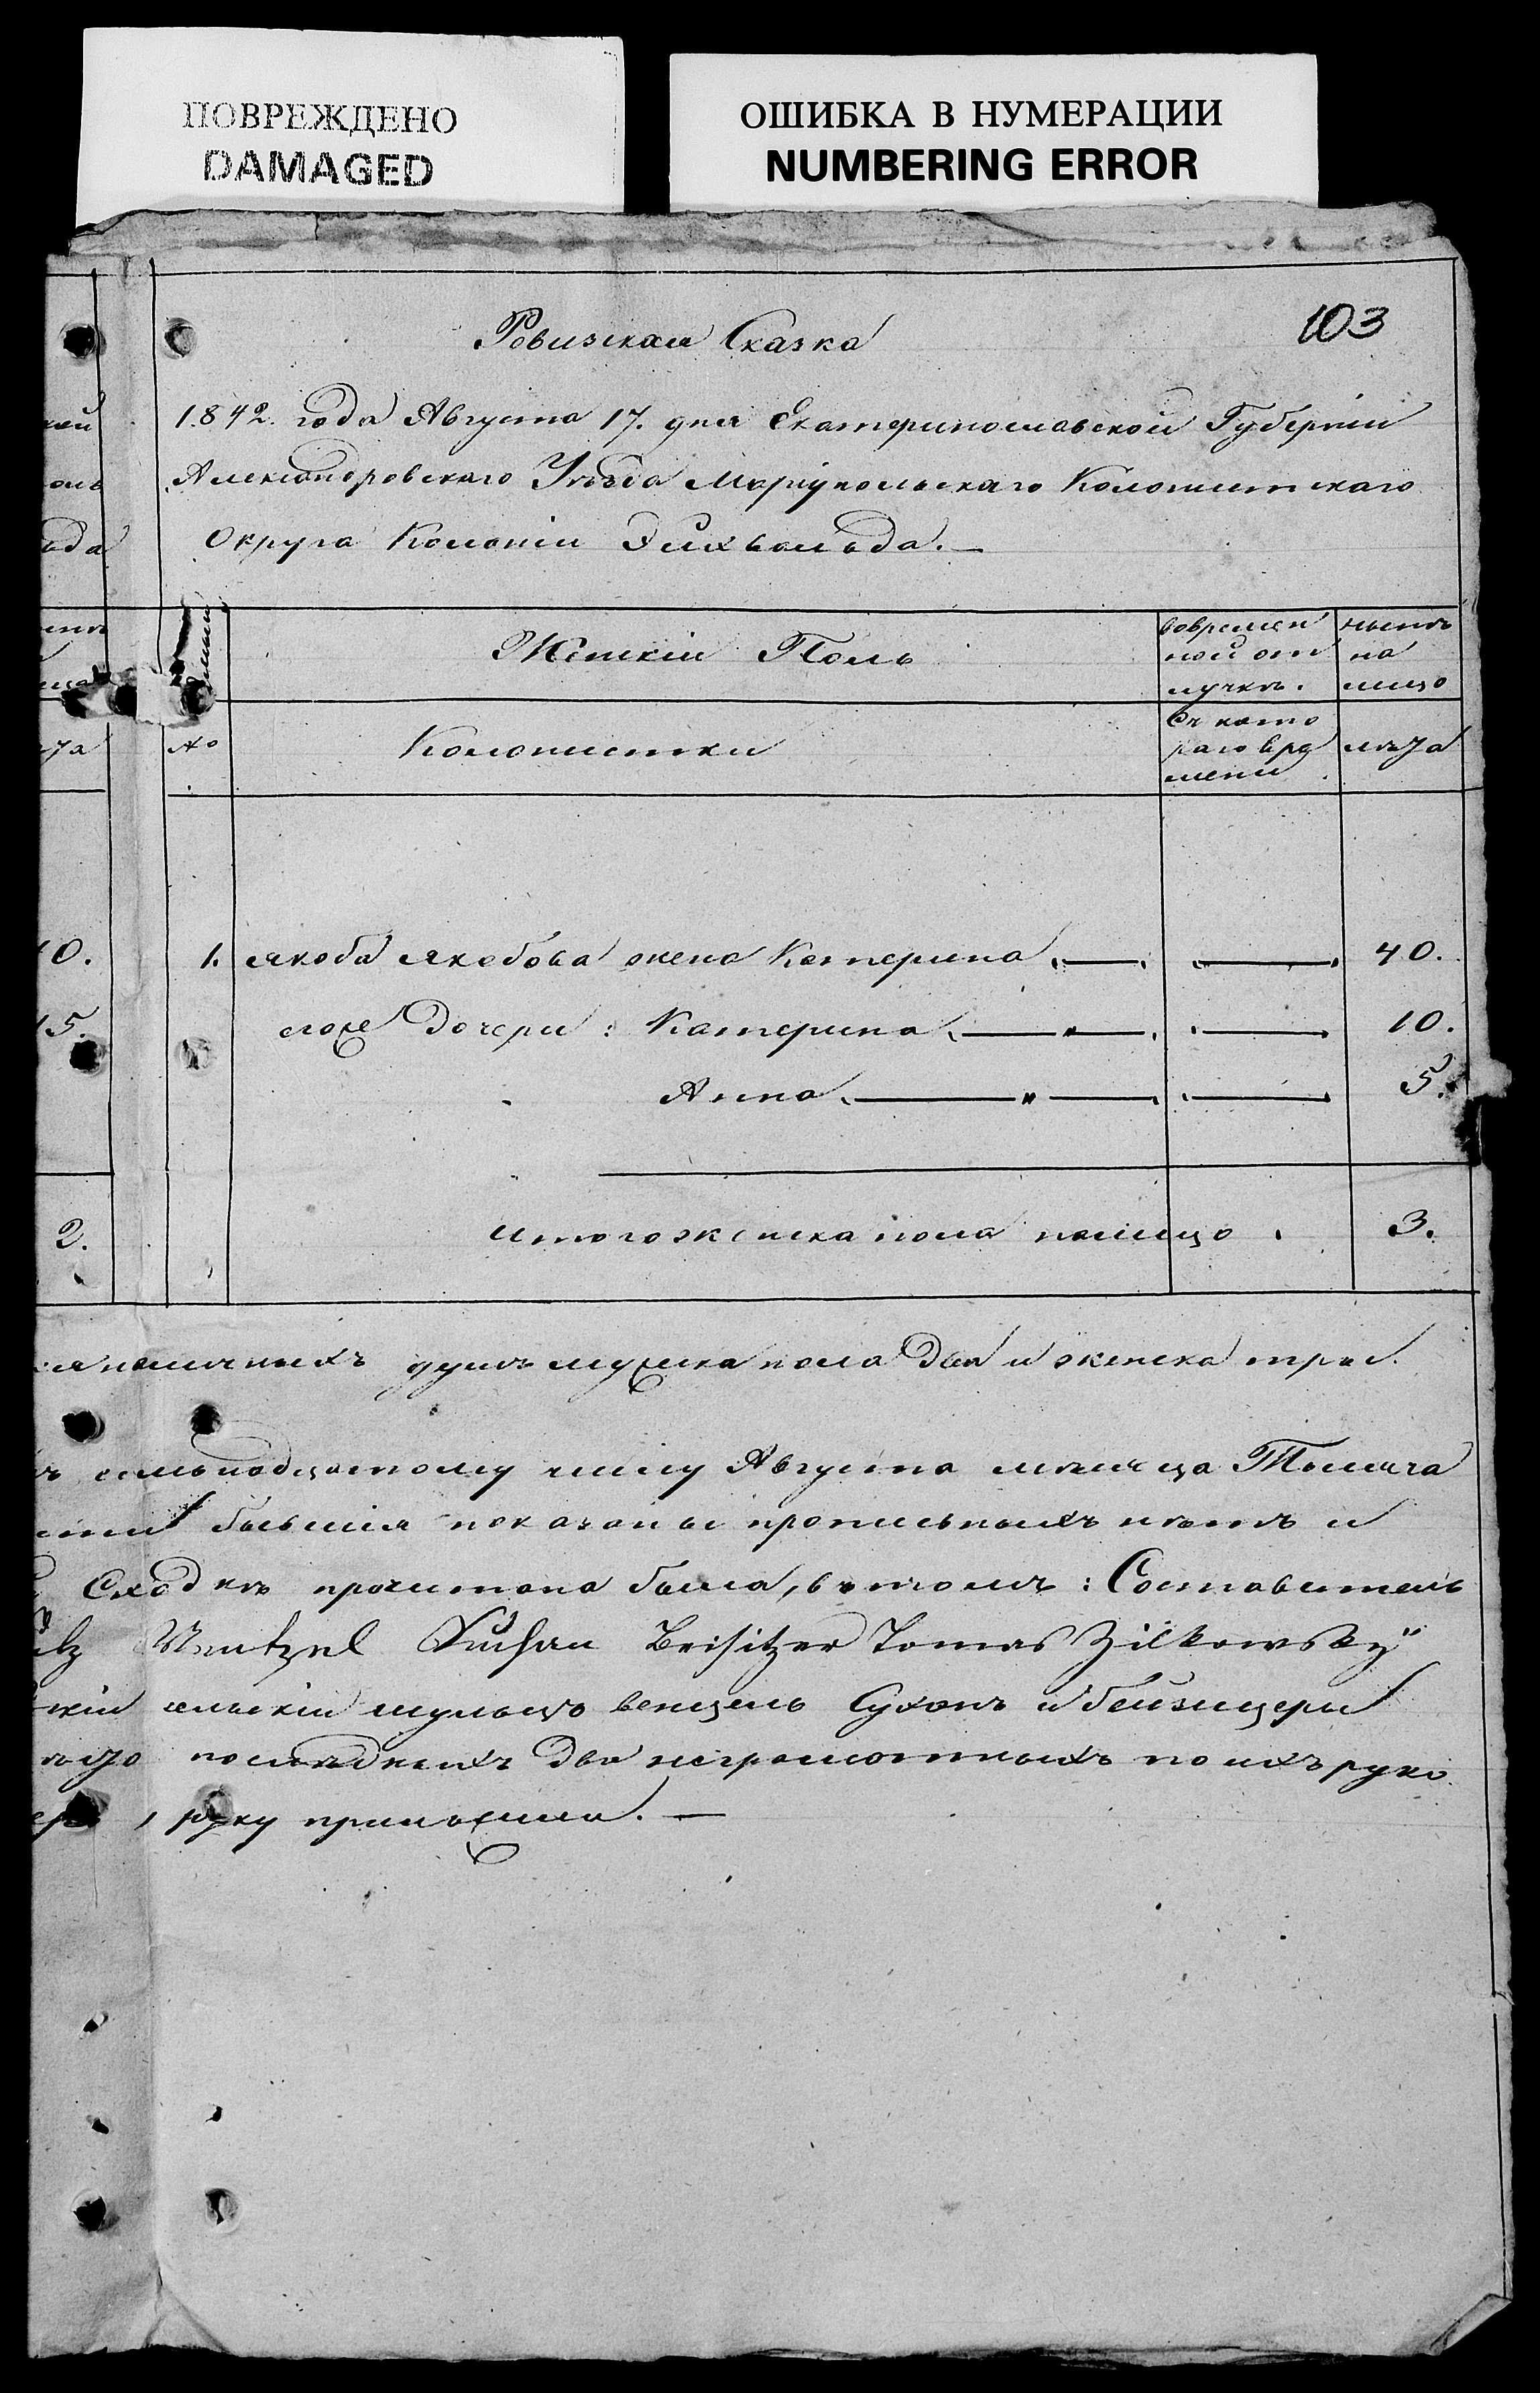 ПОВРЕЖДЕНО
DAMAGED
ОШИБКА В НУМЕРАЦИИ
NUMBERING ERROR
103
Ревизская Сказка
1842. года Августа 17. дня Екатеринославской Губерніи
Александровскаго Уезда Маріупольскаго Колонистскаго
Округа Колоніи Эйхвальда. —
Женскій Полъ
вовремен ной от лучкѣ.
нынѣ на лицо
№
Колонистки
Съ кото раго вре мени
лѣта
10.
1. Якоба Якобова жена Катерина 40.
15.
его же Дочери: Катерина 10.
Анна 5.
2.
итого женска пола налицо . 3.
наличныхъ душъ мужска пола два и женска три.
семьнадцатому числу Августа мѣсяца Тысяча
бывшия показаны прописныхъ нѣтъ и
Сходкѣ прочитана была, в томъ: Составитель
Wentzel Suchan Beisitzer Tomas Zilkowsky
сельскій шульцъ венцель Суханъ и бейзицеры
последнихъ два неграмотныхъ по ихъ руко
, руку приложила. —